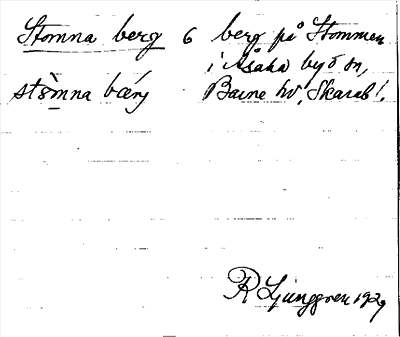 Stomna berg 6 berg på Stommen
i Åsaka by o sn,
stòmna bǽrj Barne hd, Skarab l.
R Ljunggren 1929